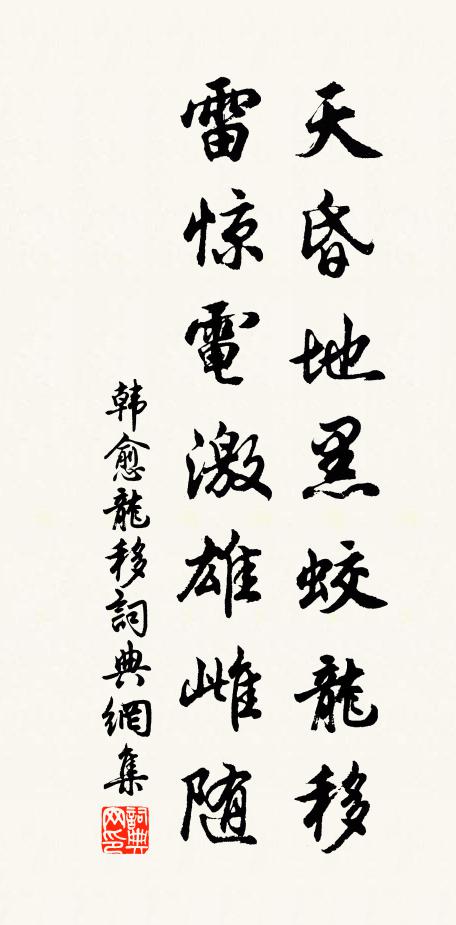 天昏地黑蛟龍移
雷惊電激雄雌随
韩愈龍移詞典網集
詞典网印